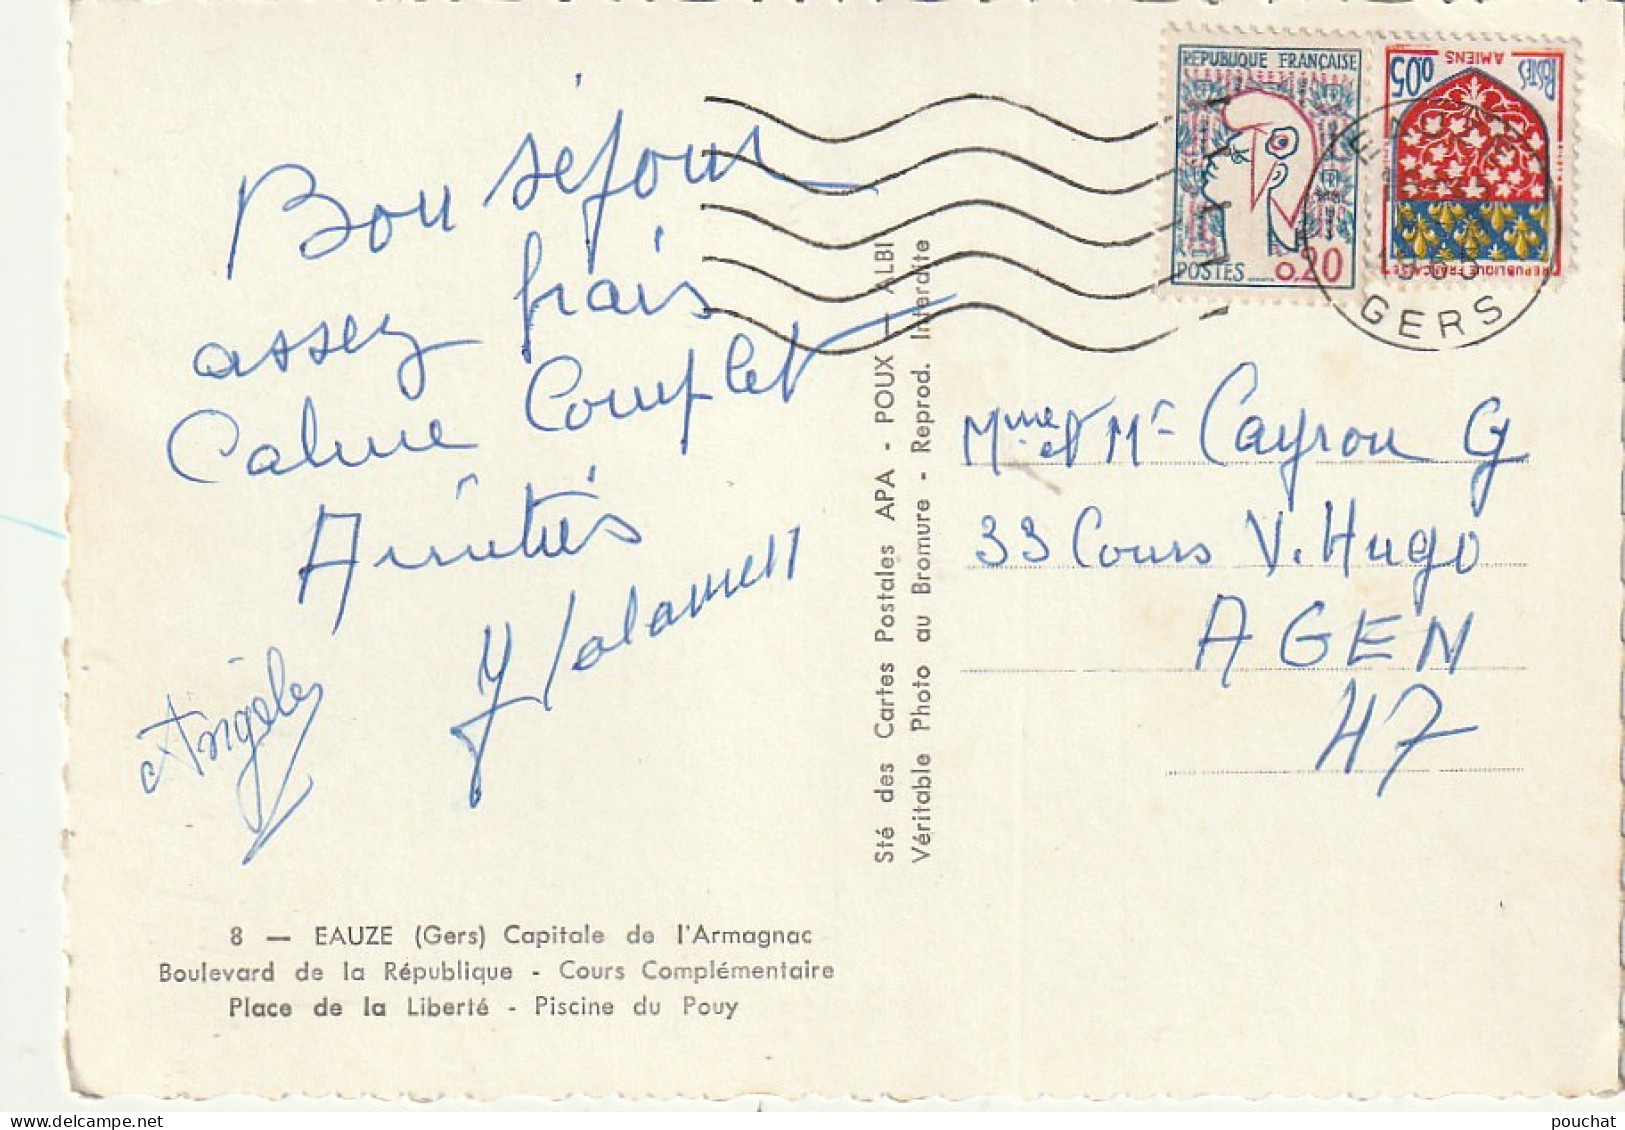 Bon séjour
assez frais
Calme Complet
Amitiés
Angèle
8 — EAUZE (Gers) Capitale de l'Armagnac
Boulevard de la République - Cours Complémentaire
Place de la Liberté - Piscine du Pouy
Sté des Cartes Postales APA - POUX — ALBI
Véritable Photo au Bromure - Reprod. Interdite
REPUBLIQUE FRANÇAISE
POSTES 0,20
AMIENS
POSTES 0,05
REPUBLIQUE FRANÇAISE
EAUZE
GERS
Mme et Mr Cayrou G
33 Cours V. Hugo
AGEN
47
pouchat